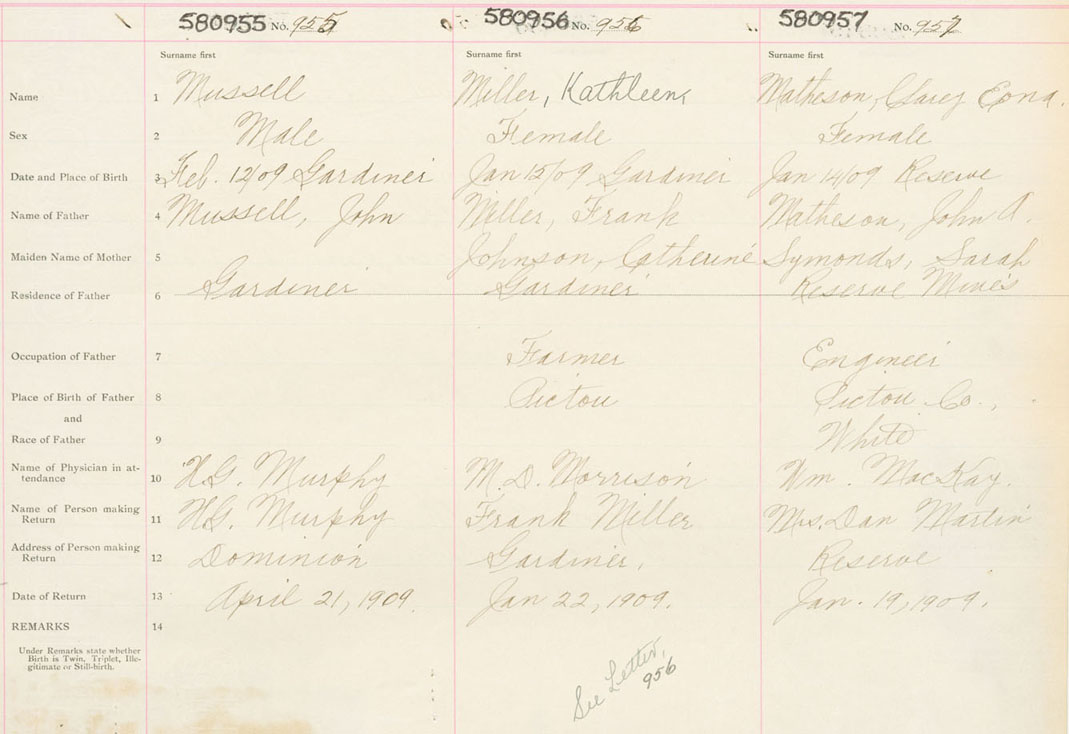 580955 No. 955 580956 No. 956 580957 No. 957
Surname first Surname first Surname first
Name 1 Mussell Miller, Kathleen, Matheson, Edna.
Sex 2 Male Female Female
Date and Place of Birth 3 Feb. 12/09 Gardiner Jan 15/09 Gardiner Jan 14/09 Reserve
Name of Father 4 Mussell, John Miller, Frank Matheson, John A.
Maiden Name of Mother 5 Johnson, Catherine Symonds, Sarah
Residence of Father 6 Gardiner Gardiner Reserve Mines
Occupation of Father 7 Farmer Engineer
Place of Birth of Father 8 Pictou Pictou Co.,
and
Race of Father 9 White
Name of Physician in at-
tendance 10 H.G. Murphy M.D. Morrison Wm. MacKay.
Name of Person making
Return 11 H.G. Murphy Frank Miller Mrs. Dan Martin
Address of Person making
Return 12 Dominion Gardiner, Reserve
Date of Return 13 April 21, 1909. Jan 22, 1909. Jan. 19, 1909.
REMARKS 14
Under Remarks state whether
Birth is Twin, Triplet, Ille-
gitimate or Still-birth.
See Letter,
956